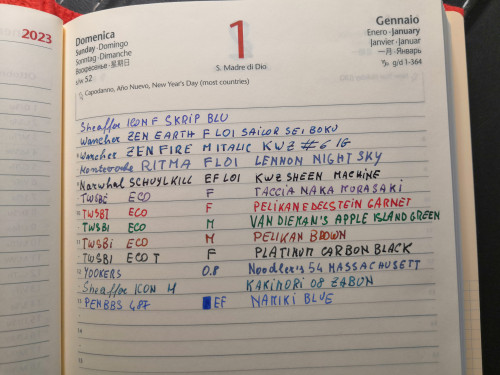 2023
Domenica
Sunday · Domingo
Sonntag · Dimanche
Воскресенье · 星期日
u/w 52
1
S. Madre di Dio
Gennaio
Enero · January
Janvier · Januar
一月 · Январь
♑ g/d 1-364
Capodanno, Año Nuevo, New Year's Day (most countries)
Sheaffer ICON F SKRIP BLU
Wancher ZEN EARTH F LOI SAILOR SEI BOKU
Wancher ZEN FIRE M ITALIC KWZ #6 IG
Monteverde RITMA F LOI LENNON NIGHT SKY
Narwhal SCHUYLKILL EF LOI KWZ SHEEN MACHINE
TWSBI ECO F TACCIA NAKA MURASAKI
TWSBI ECO F PELIKAN EDELSTEIN GARNET
TWSBI ECO M VAN DIEMAN'S APPLE ISLAND GREEN
TWSBI ECO M PELIKAN BROWN
TWSBI ECO T F PLATINUM CARBON BLACK
YOOKERS 0.8 Noodler's 54 MASSACHUSETT
Sheaffer ICON M KAKIMORI 08 ZABUN
PENBBS 487 EF NAMIKI BLUE